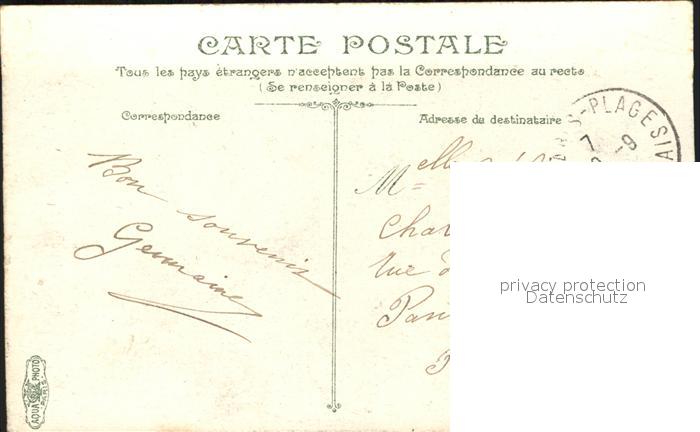 CARTE POSTALE
Tous les pays étrangers n'acceptent pas la Correspondance au recto
(Se renseigner à la Poste)
Correspondance
Adresse du destinataire
-PLAGE SIA
7 -9
Bon souvenir
Germaine
Melle
rue
privacy protection
Datenschutz
AQUA PHOTO
PARIS